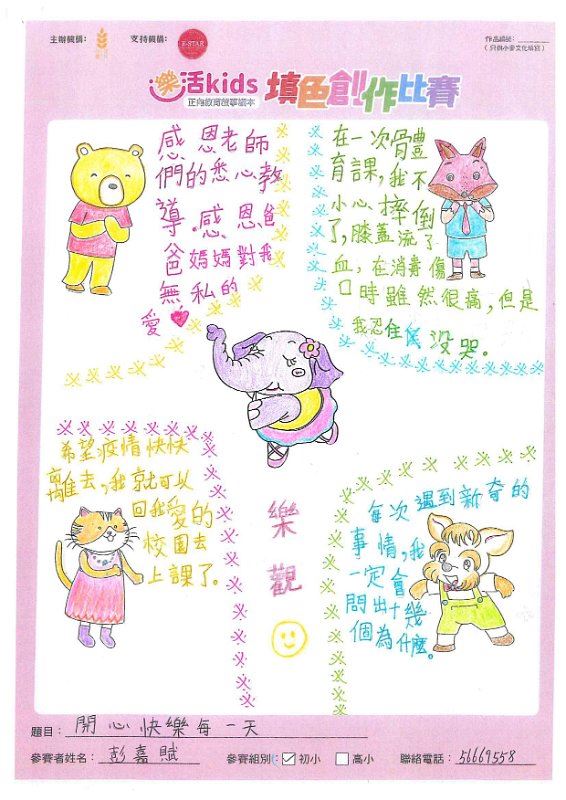 主辦機構：
支持機構：
E-STAR
作品編號：
（只供小麥文化填寫）
樂活kids
正向教育故事繪本
填色創作比賽
感恩老師
們的悉心教
導。感恩爸
爸媽媽對我
無私的
愛
在一次骨體
育課，我不
小心摔倒
了，膝蓋流了
血，在消毒傷
口時雖然很痛，但是
我忍住 沒哭。
希望疫情快快
離去，我就可以
回我愛的
校園去
上課了。
樂
觀
每次遇到新奇的
事情，我
一定會
問出十幾
個為什麼。
題目：開心快樂每一天
參賽者姓名：彭嘉賦
參賽組別：初小 高小
聯絡電話：56669558